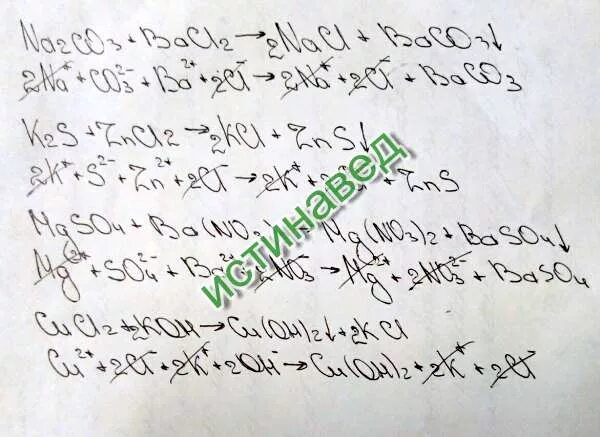 Na2CO3 + BaCl2 → 2NaCl + BaCO3↓
2Na⁺ + CO3²⁻ + Ba²⁺ + 2Cl⁻ → 2Na⁺ + 2Cl⁻ + BaCO3
K2S + ZnCl2 → 2KCl + ZnS↓
2K⁺ + S²⁻ + Zn²⁺ + 2Cl⁻ → 2K⁺ + + ZnS
MgSO4 + Ba(NO3) Mg(NO3)2 + BaSO4↓
Mg²⁺ + SO4²⁻ + Ba²⁺ + 2NO3⁻ → Mg²⁺ + 2NO3⁻ + BaSO4
CuCl2 + 2KOH → Cu(OH)2↓ + 2KCl
Cu²⁺ + 2Cl⁻ + 2K⁺ + 2OH⁻ → Cu(OH)2 + 2K⁺ + 2Cl⁻
истинавед